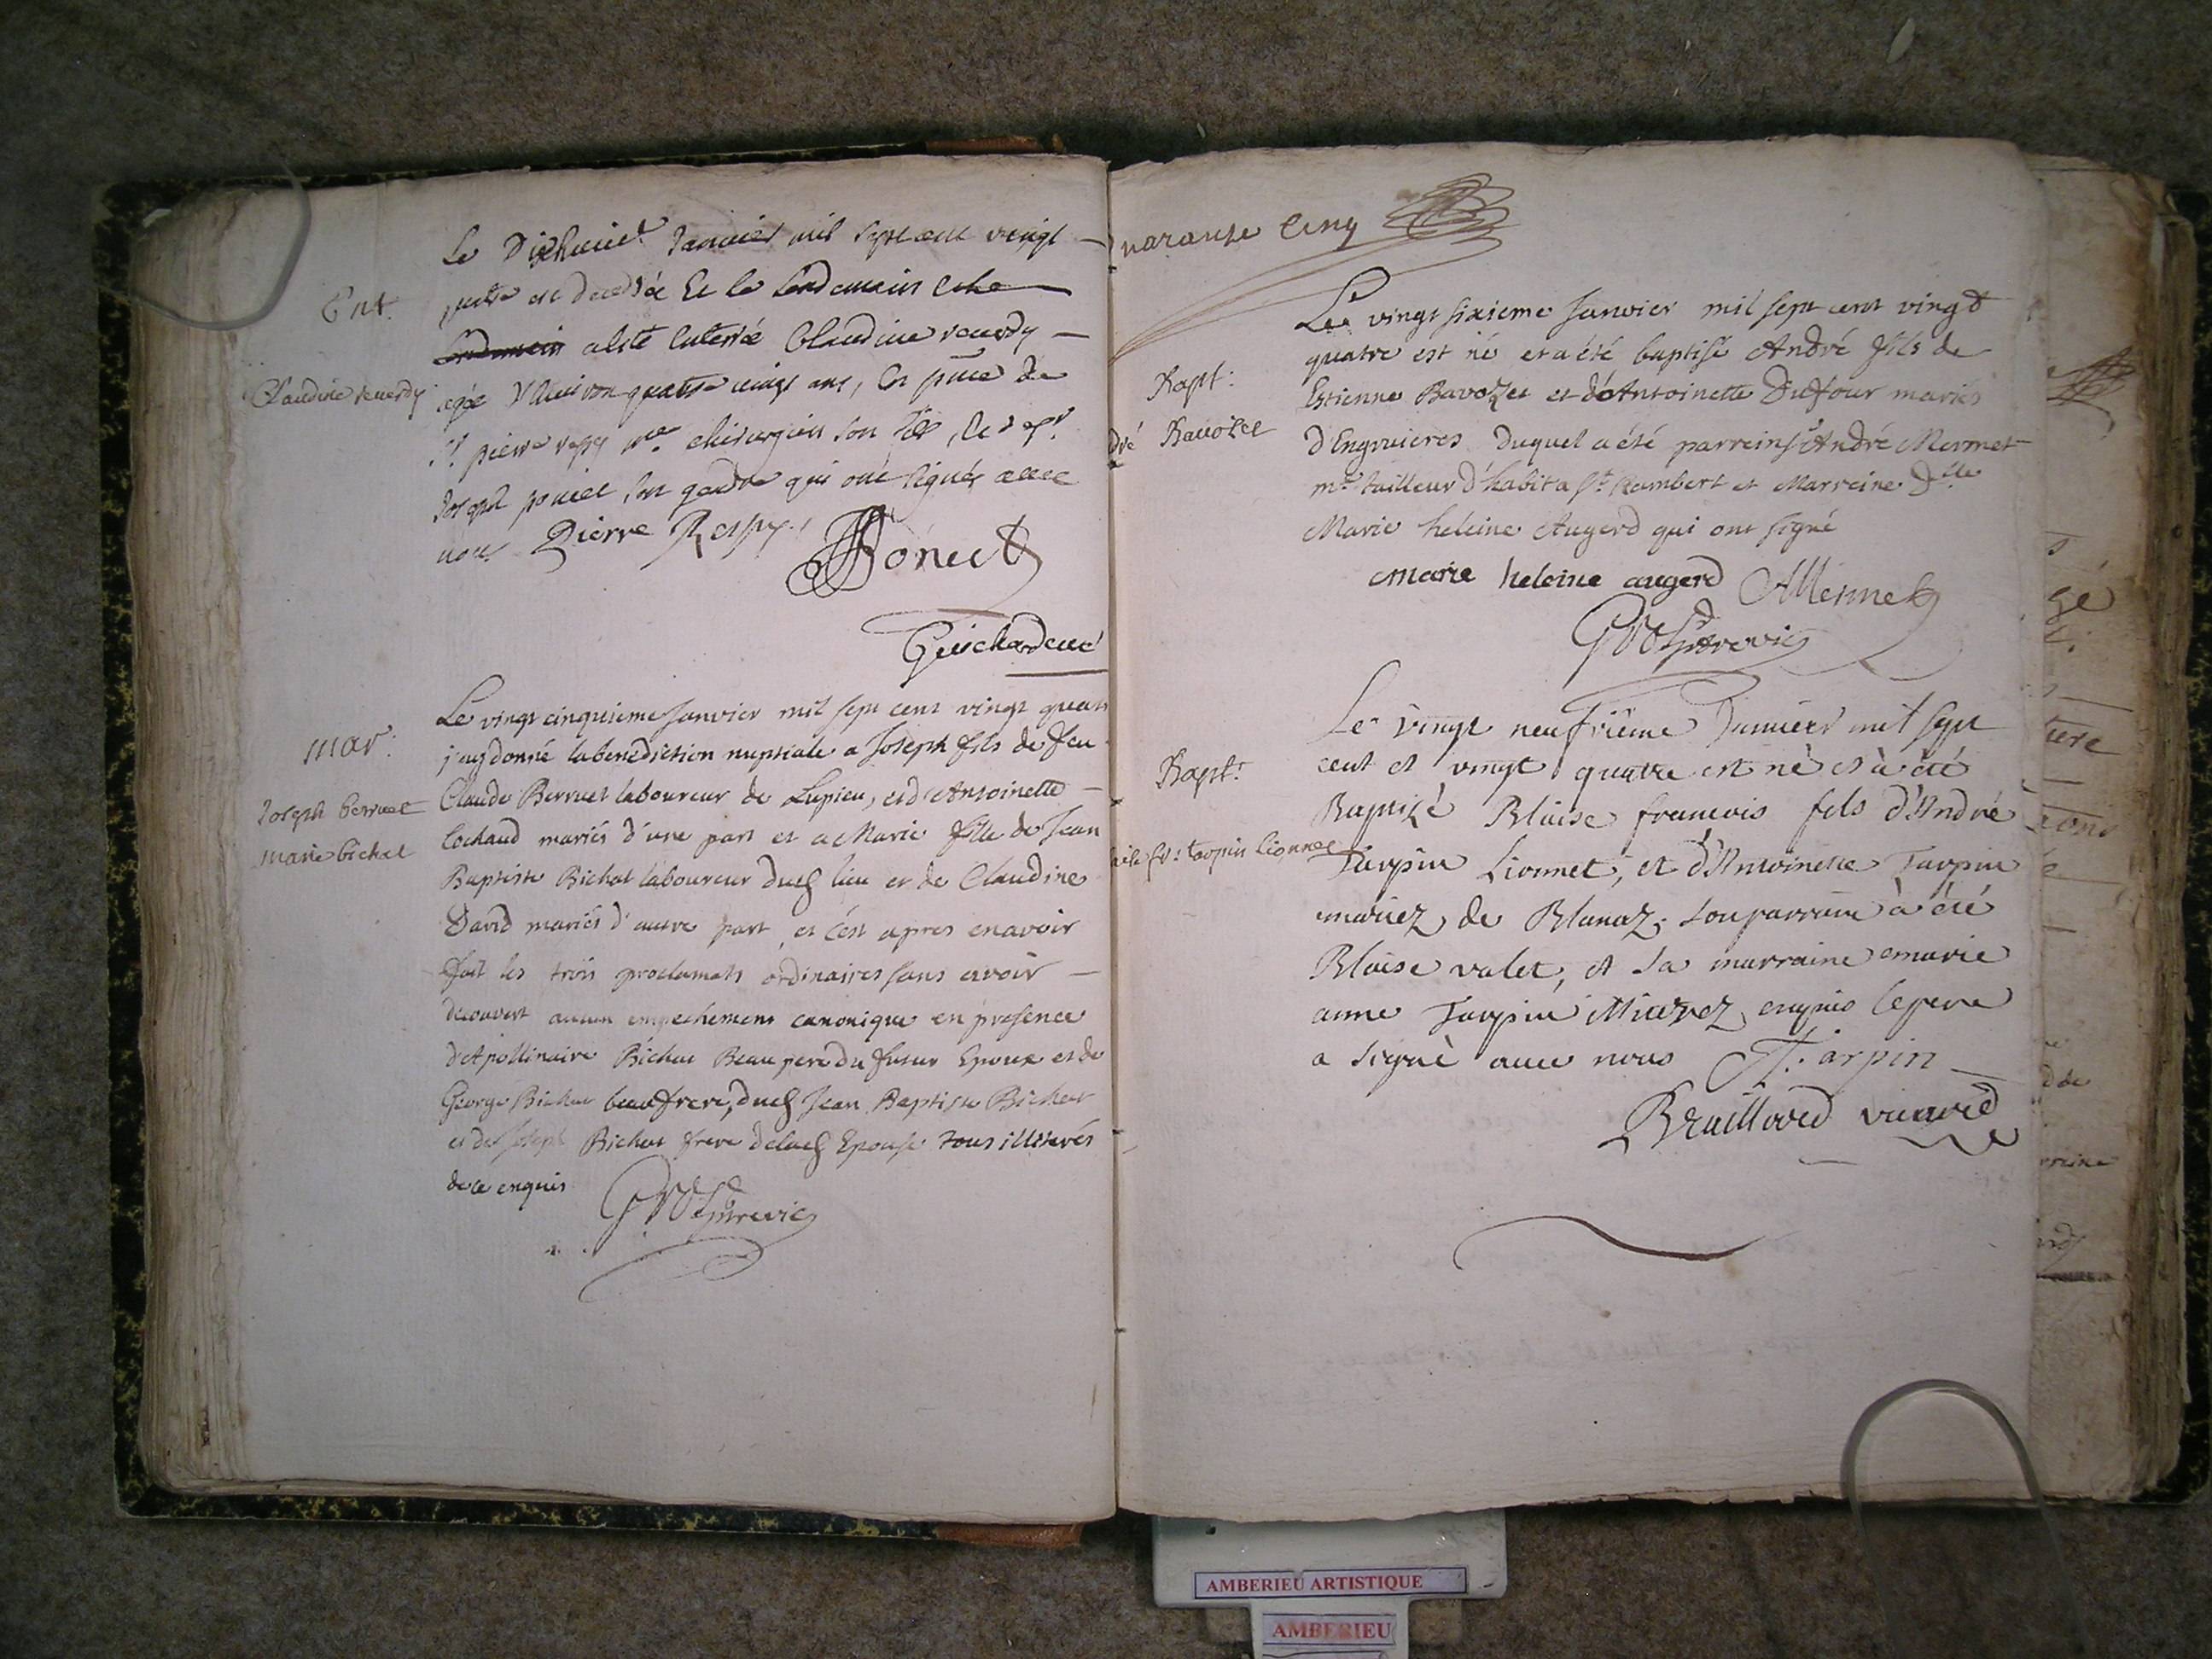 Le Dixhuict Janvier mil sept cent vingt
quatre est decedée Et le lendemain
Ent.
a esté Enterrée Claudine reverdy
Claudine reverdy
agée d'Environ quatre vingt ans, En pnce de
Sr. pierre respy me. chirurgien son fils, Et de sr
Joseph poncet son gendre qui ont signés avec
nous Pierre Respy
Ponect
Guichard curé
Le vingt cinquieme Janvier mil sept cent vingt quatr
mar:
j'ay donné la benediction nuptiale a Joseph fils de feu
Claude Berruet laboureur de Lupieu, et d'Antoinette
Joseph berruet
Cochaud mariés d'une part et a Marie fille de Jean
marie bichat
Baptiste Bichat laboureur dud lieu et de Claudine
David mariés d'autre part, et c'est apres en avoir
fait les trois proclamats ordinaires sans avoir
decouvert aucun empechement canonique en presence
d'Apollinaire Bichat Beau pere du futur Epoux et de
George Bichat beau frere, dud Jean Baptiste Bichat
et de Joseph Bichat frere de lad Epouse tous illiterés
de ce enquis
varante Cinq
Le vingt sixieme Janvier mil sept cent vingt
quatre est né et a été baptisé André fils de
Bapt:
Estienne Bavozet et d'Antoinette Dufour mariés
dré Bavozet
d'Engrieres duquel a été parrein sr André Mermet
me tailleur d'habit a St Rambert et Marreine Dlle
Marie heleine Augerd qui ont signé
marie heleine augerd AMermet
Le vingt neufvième Janvier mil sept
cent et vingt quatre est nè et à été
Bapt:
Baptizè Blaise francois fils d'André
Tarpin Lionnet, et d'Antoinette Tarpin
mariez de Blanaz; son parrain à été
Blaise valet, et sa marraine marie
anne Tarpin Miesvez, enquis le pere
a signè avec nous A. Tarpin
Brailloved vicaire
AMBERIEU ARTISTIQUE
AMBERIEU